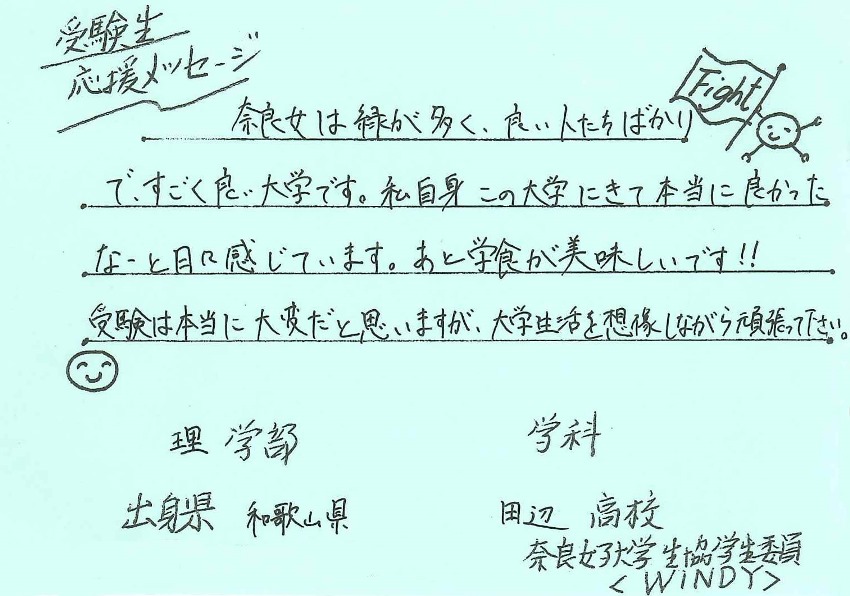 受験生
応援メッセージ
Fight
奈良女は緑が多く、良い人たちばかり
で、すごく良い大学です。私自身この大学にきて本当に良かった
なーと日々感じています。あと学食が美味しいです!!
受験は本当に大変だと思いますが、大学生活を想像しながら頑張って下さい。
理学部 学科
出身県 和歌山県 田辺 高校
奈良女子大学生協学生委員
<WiNDY>